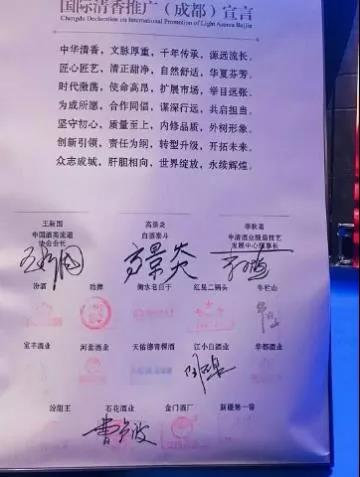 国际清香推广（成都）宣言
Chengdu Declaration on International Promotion of Light Aroma Baijiu
中华清香，文脉厚重，千年传承，源远流长。
匠心匠艺，清正甜净，自然舒适，华夏芬芳。
时代激荡，使命高昂，扩展市场，举目远张。
为成所愿，合作同倡，谋深行远，共启担当。
坚守初心，质量至上，内修品质，外树形象。
创新引领，责任为纲，转型升级，开拓未来。
众志成城，肝胆相向，世界绽放，永续辉煌。
王新国 高景炎 李秋喜
中国酒类流通 白酒泰斗
协会会长 发展中心理事长
高景炎
汾酒 衡水老白干 红星二锅头 牛栏山
宝丰酒业 河套酒业 天佑德青稞酒 江小白酒业 华都酒业
汾阳王 石花酒业 金门酒厂 新疆第一窖